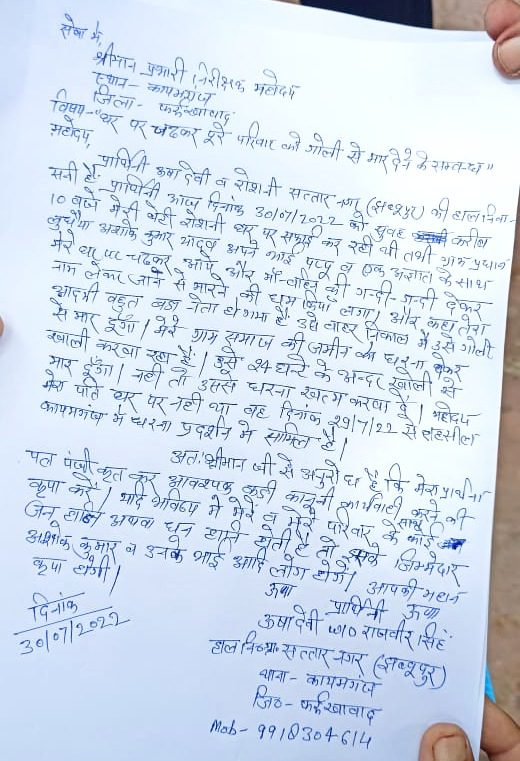 सेवा में,
श्रीमान प्रभारी निरीक्षक महोदय
स्थान - कायमगंज
जिला - फर्रुखाबाद
विषय- "घर पर चढकर पूरे परिवार को गोली से मार देने के सम्बन्ध"
महोदय,
प्रार्थिनी ऊषा देवी व रोशनी सत्तार नगर (झब्बूपुर) की हाल निवा-
सनी है प्रार्थिनी आज दिनांक 30/07/2022 को सुवह करीब
10 बजे मेरी बेटी रोशनी घर पर सफाई कर रही थी तभी ग्राम प्रधान
लुधैया अशोक कुमार यादव अपने भाई पप्पू व एक अज्ञात के साथ
मेरे घर पर चढकर आये और माँ-बहिन की गन्दी-गन्दी देकर
नाम लेकर जान से मारने की धमकी देने लगा। और कहा तेरा
आदमी बहुत बड़ा नेता हो गया है उसे बाहर निकाल मैं उसे गोली
से मार दूँगा। मेरे ग्राम समाज की जमीन का धरना देकर
खाली करवा रहा है। उसे 24 घन्टे के अन्दर खाली से
मार दूँगा। नही तो उससे धरना खत्म करवा दे। महोदय
मेरा पति घर पर नही था वह दिनांक 29/7/22 से तहसील
कायमगंज में धरना प्रदर्शन मे सामिल है।
अतः श्रीमान जी से अनुरोध है कि मेरा प्रार्थना
पत्र पंजीकृत कर आवश्यक कडी कानूनी कार्यवाही करने की
कृपा करें। यदि भविष्य में मेरे व मेरे परिवार के साथ कोई
जन हानि अथवा धन हानि होती है तो इसके जिम्मेदार
अशोक कुमार व उनके भाई आदि लोग होगें। आपकी महान
कृपा होगी।
ऊषा
दिनांक
30/07/2022
प्रार्थिनी ऊषा
ऊषादेवी w/o राजवीर सिंह
हाल नि०ग्रा० सत्तार नगर (झब्बूपुर)
थाना - कायमगंज
जि० - फर्रुखावाद
Mob - 9918304614